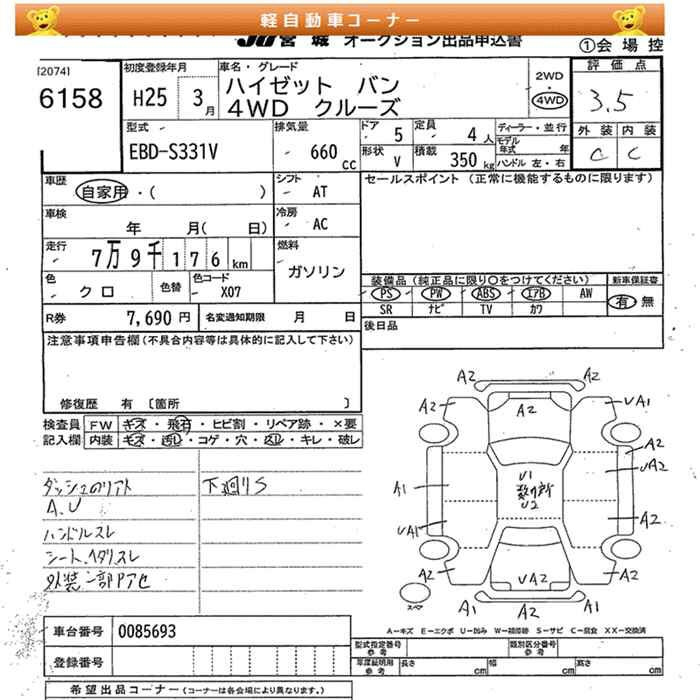 軽自動車コーナー
JU宮城 オークション出品申込書
①会場控
[2074]
6158
初度登録年月
H25 3月
車名・グレード
ハイゼット バン
4WD クルーズ
2WD
4WD
評価点
3.5
外装 内装
C C
型式
EBD-S331V
排気量
660 CC
ドア 5
定員 4人
形状 V
積載 350 kg
ディーラー・並行
モデル年式 年
ハンドル 左・右
車歴
自家用・( )
シフト
AT
セールスポイント (正常に機能するものに限ります)
車検
年 月( 日)
冷房
AC
走行
7万9千176 km
燃料
ガソリン
色
クロ
色替
色コード
X07
装備品(純正品に限り○をつけてください)
新車保証書
PS PW ABS エアB AW
有 無
SR ナビ TV カワ
R券 7,690円
名変通知期限 月 日
後日品
注意事項申告欄(不具合内容等は具体的に記入して下さい)
修復歴 有 〔箇所 〕
検査員 FW キズ・飛石・ヒビ割・リペア跡・×要
記入欄 内装 キズ・汚れ・コゲ・穴・スレ・キレ・破レ
下廻りS
A.U
ハンドルスレ
外装一部
A2 A2
A2 A2 UA1
A2
UA2
A1 U1
数ヶ所
U2 A2
UA1
A2 UA2 A2
スペア
A1 A2 A1
A-キズ E-エクボ U-凹み W-補修跡 S-サビ C-腐食 XX-交換済
車台番号 0085693
登録番号
型式指定番号
参考
類別区分番号
参考
年度証明用
参考
長さ cm 幅 cm 高さ cm
希望出品コーナー(コーナーは各会場により異なります。)